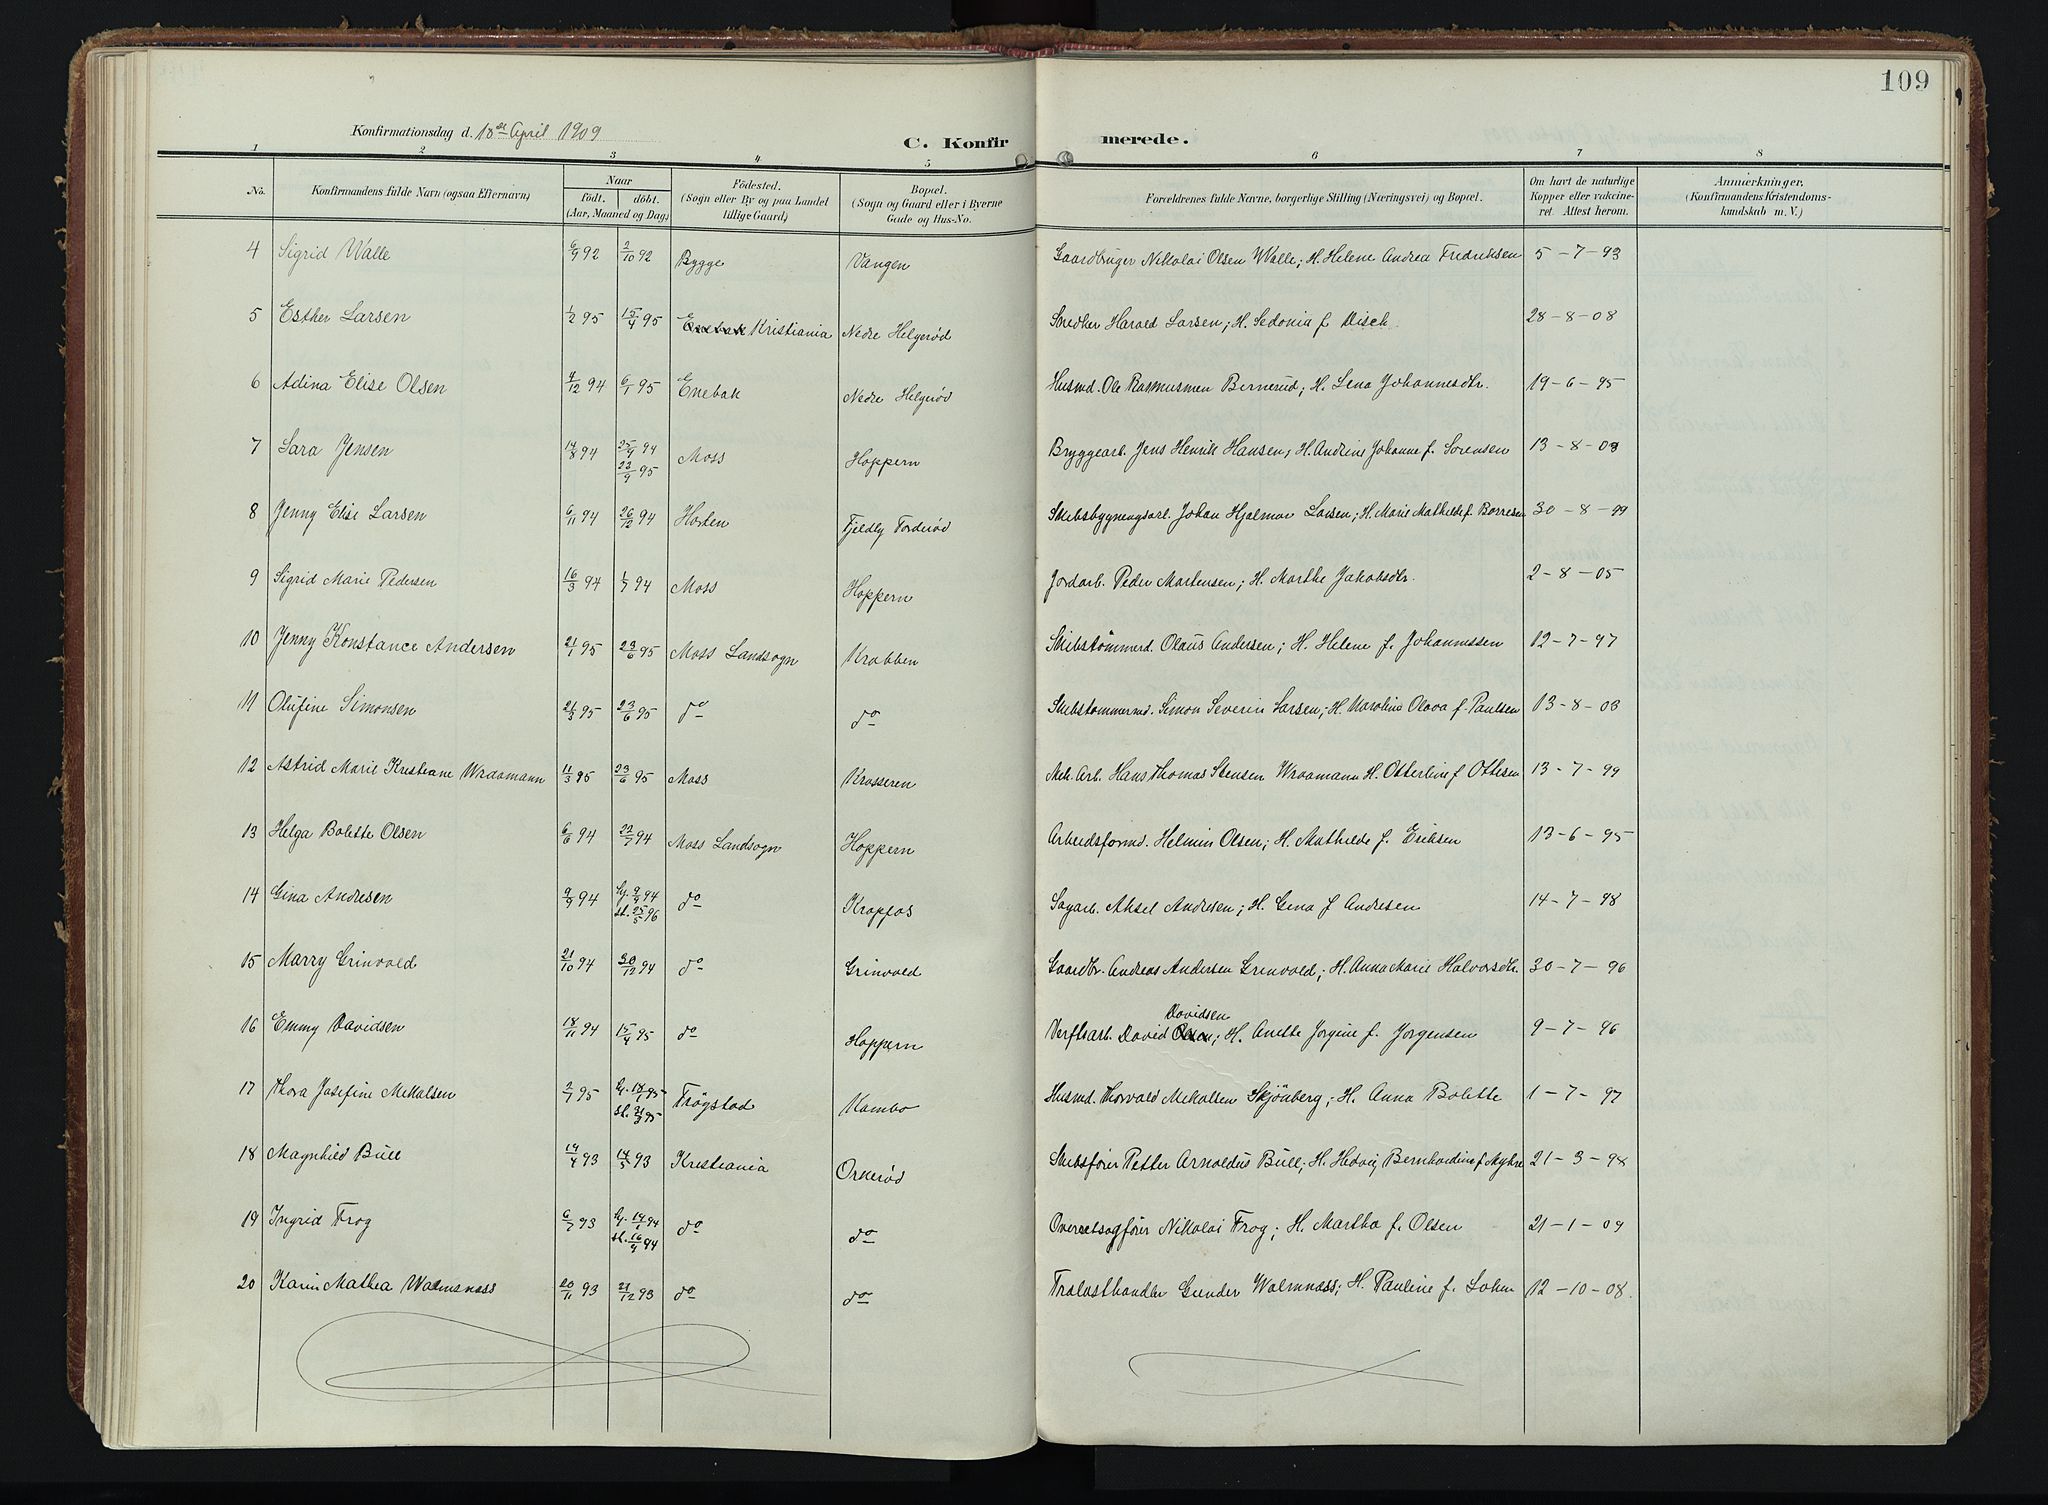 109
Konfirmationsdag d. 18de April 1909
C. Konfirmerede.
1 2 3 4 5 6 7 8
No. Konfirmandens fulde Navn (ogsaa Efternavn) Naar født. døbt. (Aar, Maaned og Dag) Fødested. (Sogn eller By og paa Landet tillige Gaard) Bopæl. (Sogn og Gaard eller i Byerne Gade og Hus-No. Forældrenes fulde Navne, borgerlige Stilling (Næringsvei) og Bopæl. Om havt de naturlige Kopper eller vakcineret. Attest herom. Anmærkninger. (Konfirmandens Kristendomskundskab m. V.)
4 Sigrid Walle 6/9 92 2/10 92 Rygge Vangen Gaardbruger Nikolai Olsen Walle; H. Helene Andrea Fredriksen 5-7-93
5 Esther Larsen 1/2 95 15/4 95 Enebak Kristiania Nedre Helgerød Snedker Harald Larsen; H. Sedonia f Disch 28-8-08
6 Adina Elise Olsen 4/12 94 6/1 95 Enebak Nedre Helgerød Husmd. Ole Rasmussen Bernerud; H. Lena Johannesdtr. 19-6-95
7 Sara Jensen 14/8 94 25/9 94 22/9 95 Moss Hoppern Bryggearb. Jens Henrik Hansen, H. Andrine Johanne f. Sørensen 13-8-03
8 Jenny Elise Larsen 6/11 94 26/12 94 Horten Fjeldly Torderød Skibsbygningsarb. Johan Hjalmar Larsen; H. Marie Mathilde f. Borresen 30-8-99
9 Sigrid Marie Pedersen 16/3 94 1/7 94 Moss Hoppern Jordarb. Peder Martensen; H. Marthe Jakobsdtr. 2-8-05
10 Jenny Konstance Andersen 21/1 95 23/6 95 Moss Landsogn Krabben Skibstømmerd. Olaus Andersen; H. Helene f. Johannssen 12-7-97
11 Olufine Simonsen 21/3 95 23/6 95 do do Skibstømmermd. Simon Severin Larsen; H. Karoline Olava f. Paulsen 13-8-03
12 Astrid Marie Kristiane Wraamann 11/3 95 23/6 95 Moss Krosseren Mek. Arb. Hans Thomas Stensen Wraamann H. Otterline f Ottesen 13-7-99
13 Helga Bolette Olsen 6/6 94 22/7 94 Moss Landsogn Hoppern Arbeidsformd. Helmin Olsen; H. Mathilde f. Eriksen 13-6-95
14 Gina Andresen 9/9 94 hj. 9/9 94 st. 25/5 96 do Kropfos Sagarb. Aksel Andresen; H. Gina f Andresen 14-7-98
15 Marry Grinvold 21/10 94 30/12 94 do Grinvold Gaardbr. Andreas Andersen Grinvold; H. Anna Marie Halvorsdtr. 30-7-96
16 Emmy Davidsen 18/11 94 15/4 95 do Hoppern Verftsarb. David Davidsen; H. Anette Jorgine f. Jorgensen 9-7-96
17 Thora Josefine Mikalsen 2/1 95 hj. 18/1 95 st. 31/3 95 Trøgstad Kambo Husmd. Thorvald Mikalsen Skjønberg; H. Anna Bolette 1-7-97
18 Magnhild Bull 14/4 93 14/5 93 Kristiania Orkerød Skibsfører Petter Arnoldus Bull; H. Hedvig Bernhardine f. Myhre 21-3-98
19 Ingrid Frog 6/7 93 hj. 14/1 94 st. 16/9 94 do do Overretsagfører Nikolai Frog; H. Martha f. Olsen 21-1-09
20 Karin Mathea Walmsness 20/11 93 21/12 93 do do Trælasthandler Gunder Walmness; H. Pauline f. Lohm 12-10-08.